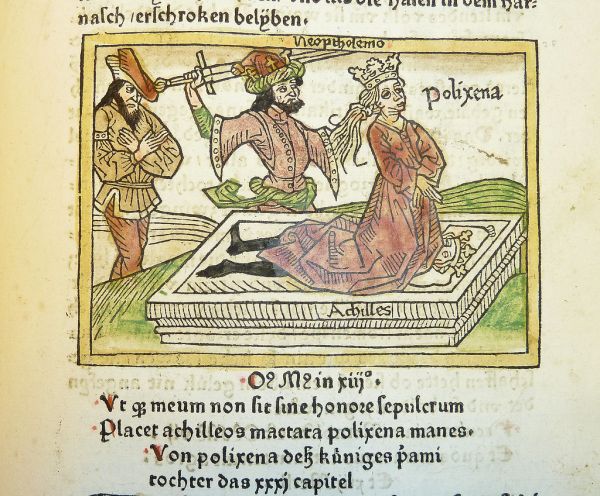 nasch/erschroken belyben.
Neoptholemo
Polixena
Achilles
Oꝰ Mꝰ in xiijº
Vt qꝫ meum non sit sine honore sepulcrum
Placet achilleos mactata polixena manes.
Von polixena deß küniges p̃ami
tochter das xxxj capitel